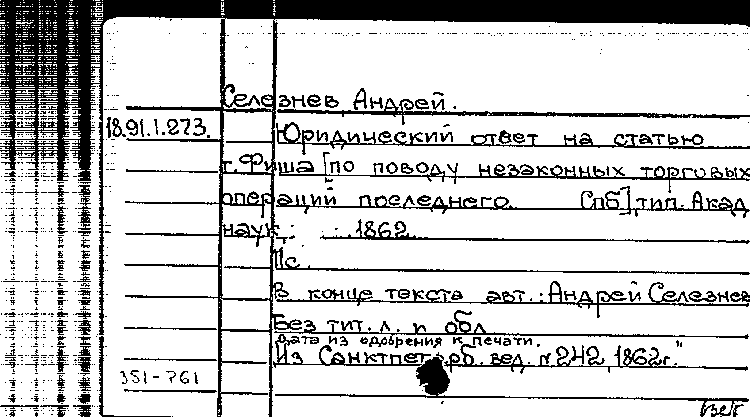 Селезнев Андрей.
18.91.1.273.
Юридический ответ на статью
г. Фиша [по поводу незаконных торговых
операций последнего. Спб], тип. Акад
наук, 1862
11с.
В конце текста авт.: Андрей Селезнев
Без тит. л. и обл
Дата из одобрения к печати.
Из "Санктпетерб. вед." №242, 1862г."
351-761